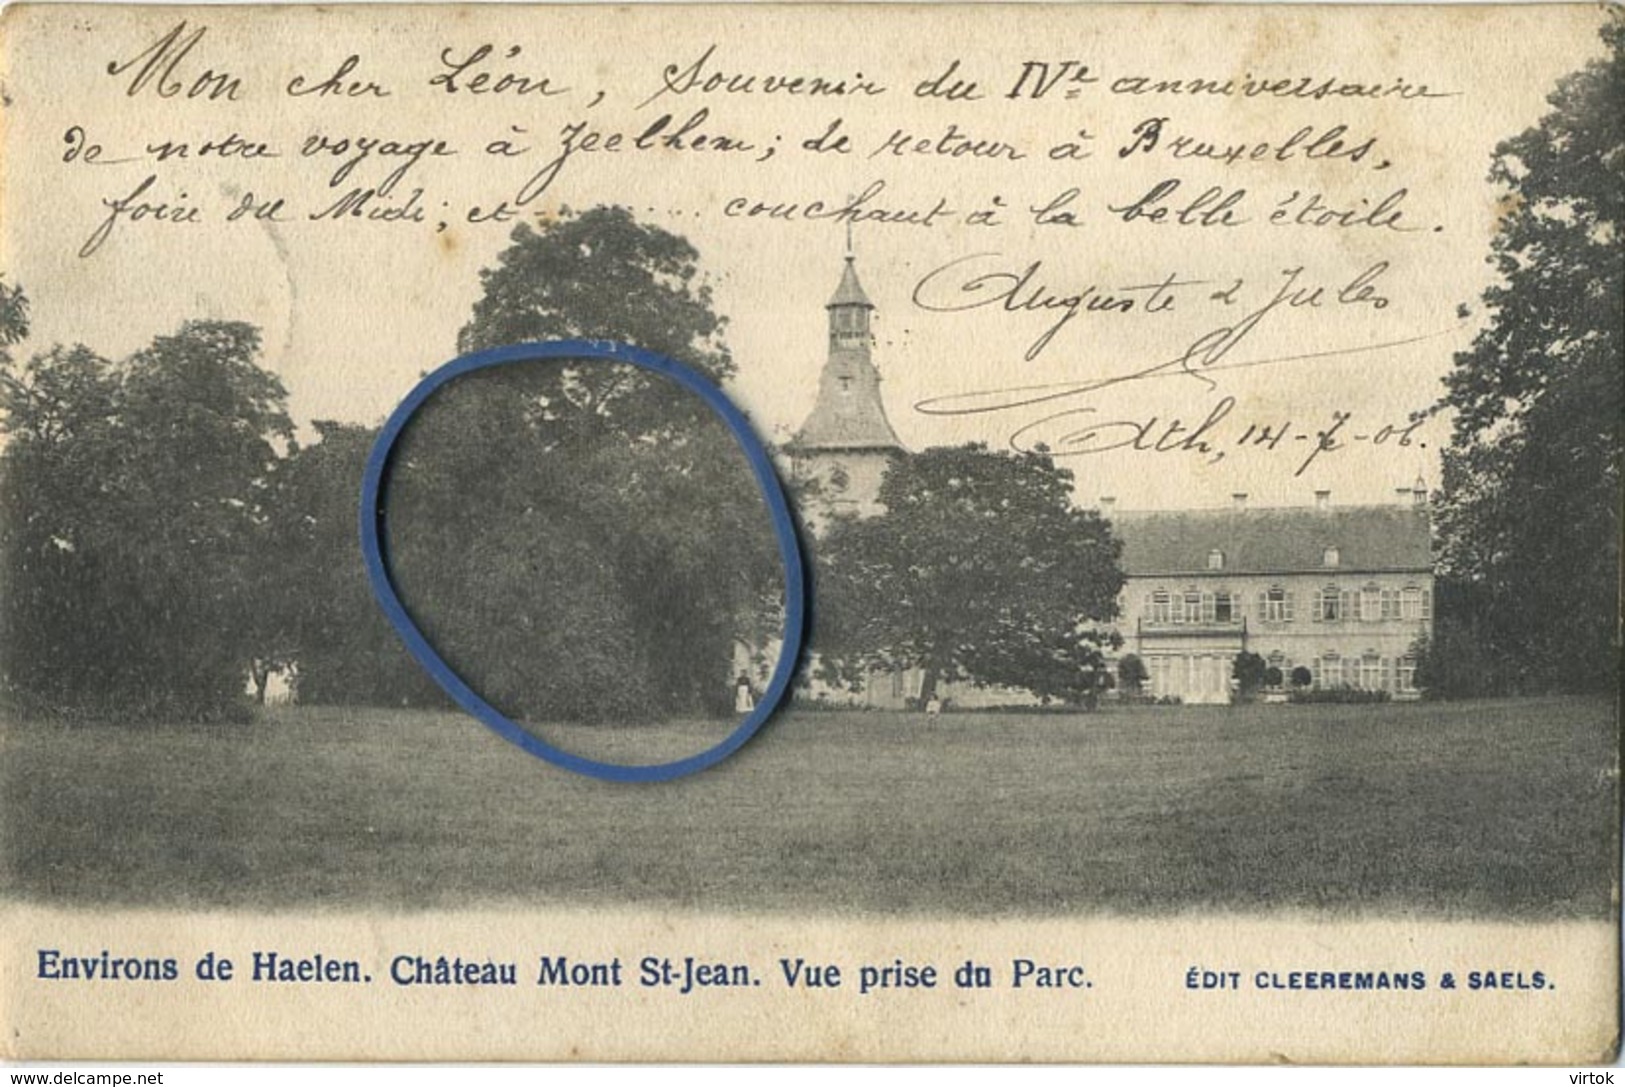 Mon cher Léon, Souvenir du IVe anniversaire
de notre voyage à Zeelhem; de retour à Bruxelles,
foire du Midi; et ........ couchant à la belle étoile.
Auguste & Jules
Ath, 14-7-06.
Environs de Haelen. Château Mont St-Jean. Vue prise du Parc.
ÉDIT CLEEREMANS & SAELS.
www.delcampe.net
virtok